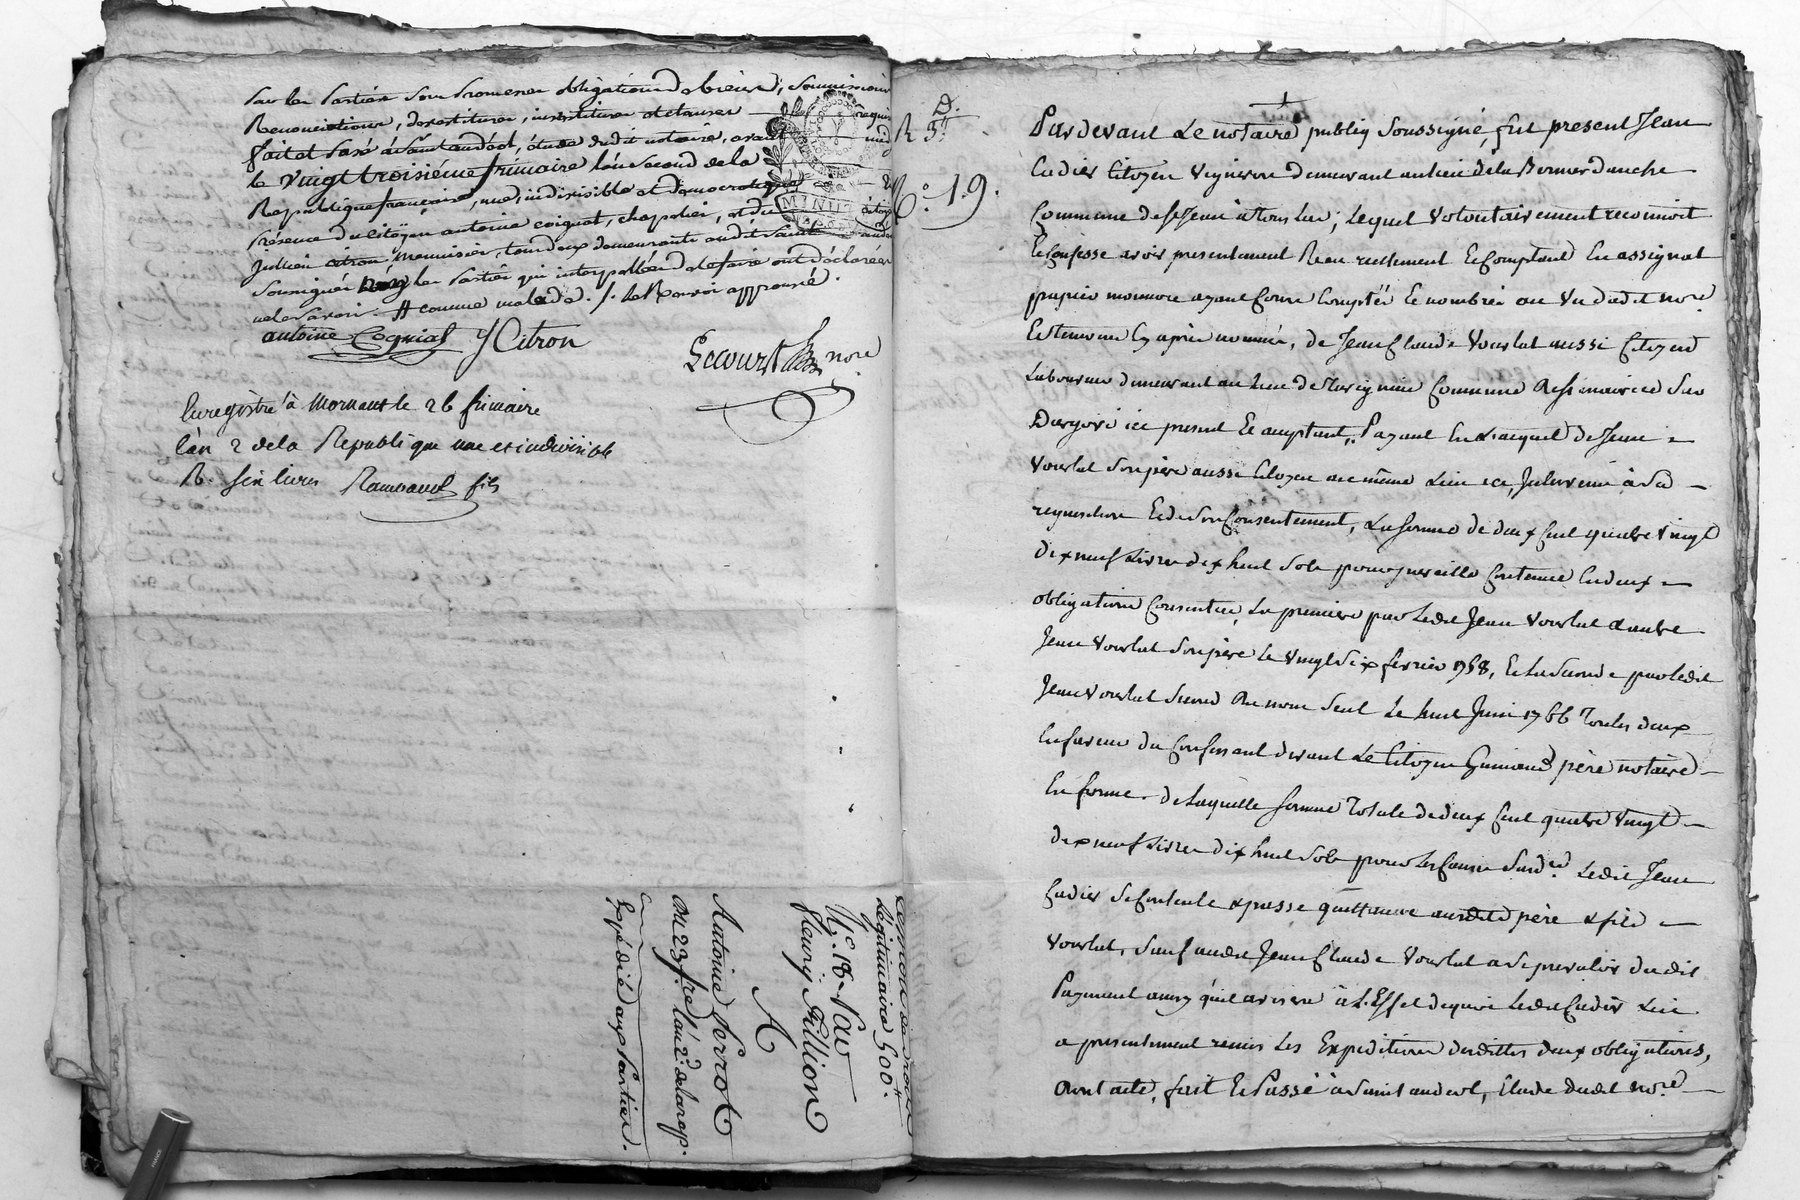 par les parties sous promesses obligations de biens, soumissions
Renonciations, devestitures, investitures et clauses requis
fait et passé à saint andéol, étude dudit notaire, avant midi
le vingt troisième frimaire l'an second de la
Republique française, une, indivisible et democratique
Présence du citoyen antoine coignat, chapelier, et du citoyen
Jullien citron menuisier, tous deux demeurants audit Saint andéol
Soussignés non les Parties qui interpellées de le faire ont déclaré
ne le savoir. # comme malade. /. le Renvoi approuvé.
antoine Cogniat J Citron
Lecourt nore
MINUTE
Enregistré à mornant le 26 frimaire
l'an 2 de la Republique une et indivisible
R. six livres Rambaud fils
Legitimaire 500.
N.° 18. Par
fleury fillion
A
Antoine ferrot
Du 23 fre l'an 2.d de la rep.
Expédié aux Parties.
R 3.tt
N.° 19.
Pardevant Le notaire public soussigné, fut present Jean
Cadier Citoyen vigneron demeurant au lieu de la
Commune de St Jean a tous las; Lequel volontairement reconnoit
Et confesse avoir presentement Receu reellement Et comptant En assignat
papier monnoie ayant cours Comptés Et nombrés au vu dudit nore
Et temoins cy après nommés, de Jean Claude Vourlat aussi Citoyen
Laboureur demeurant au lieu de Commune de St maurice sur
Dargoire ici present Et acceptant, Payant En l'acquit de Jean
Vourlat son père aussi Citoyen au même Lieu ici, Intervenu à sa
requisition Et de son Consentement, La somme de deux Cent quatre vingt
dix neuf Livres dix huit sols pour pareille Contenue En deux
obligations Consenties, La premiere par Ledit Jean Vourlat d'autre
Jean Vourlat son père Le vingt six fevrier 1758, Et La seconde par ledit
Jean Vourlat second du nom seul Le huit Juin 1766 Toutes deux
En faveur du Confessant devant Le Citoyen Guinand père notaire
En forme. de Laquelle somme Totale de deux Cent quatre vingt
dix neuf Livres dix huit sols pour Les causes susd.es Ledit Jean
Cadier se Contente & passe quittance auxdits père & fils
Vourlat, sauf audit Jean Claude Vourlat a se prevaloir dudit
Payement ainsy qu'il avisera à L'Effet de quoi Ledit Cadier Lui
a presentement remis Les Expeditions desdittes deux obligations,
Dont acte, fait Et Passé à saint andeol, Etude dudit nore